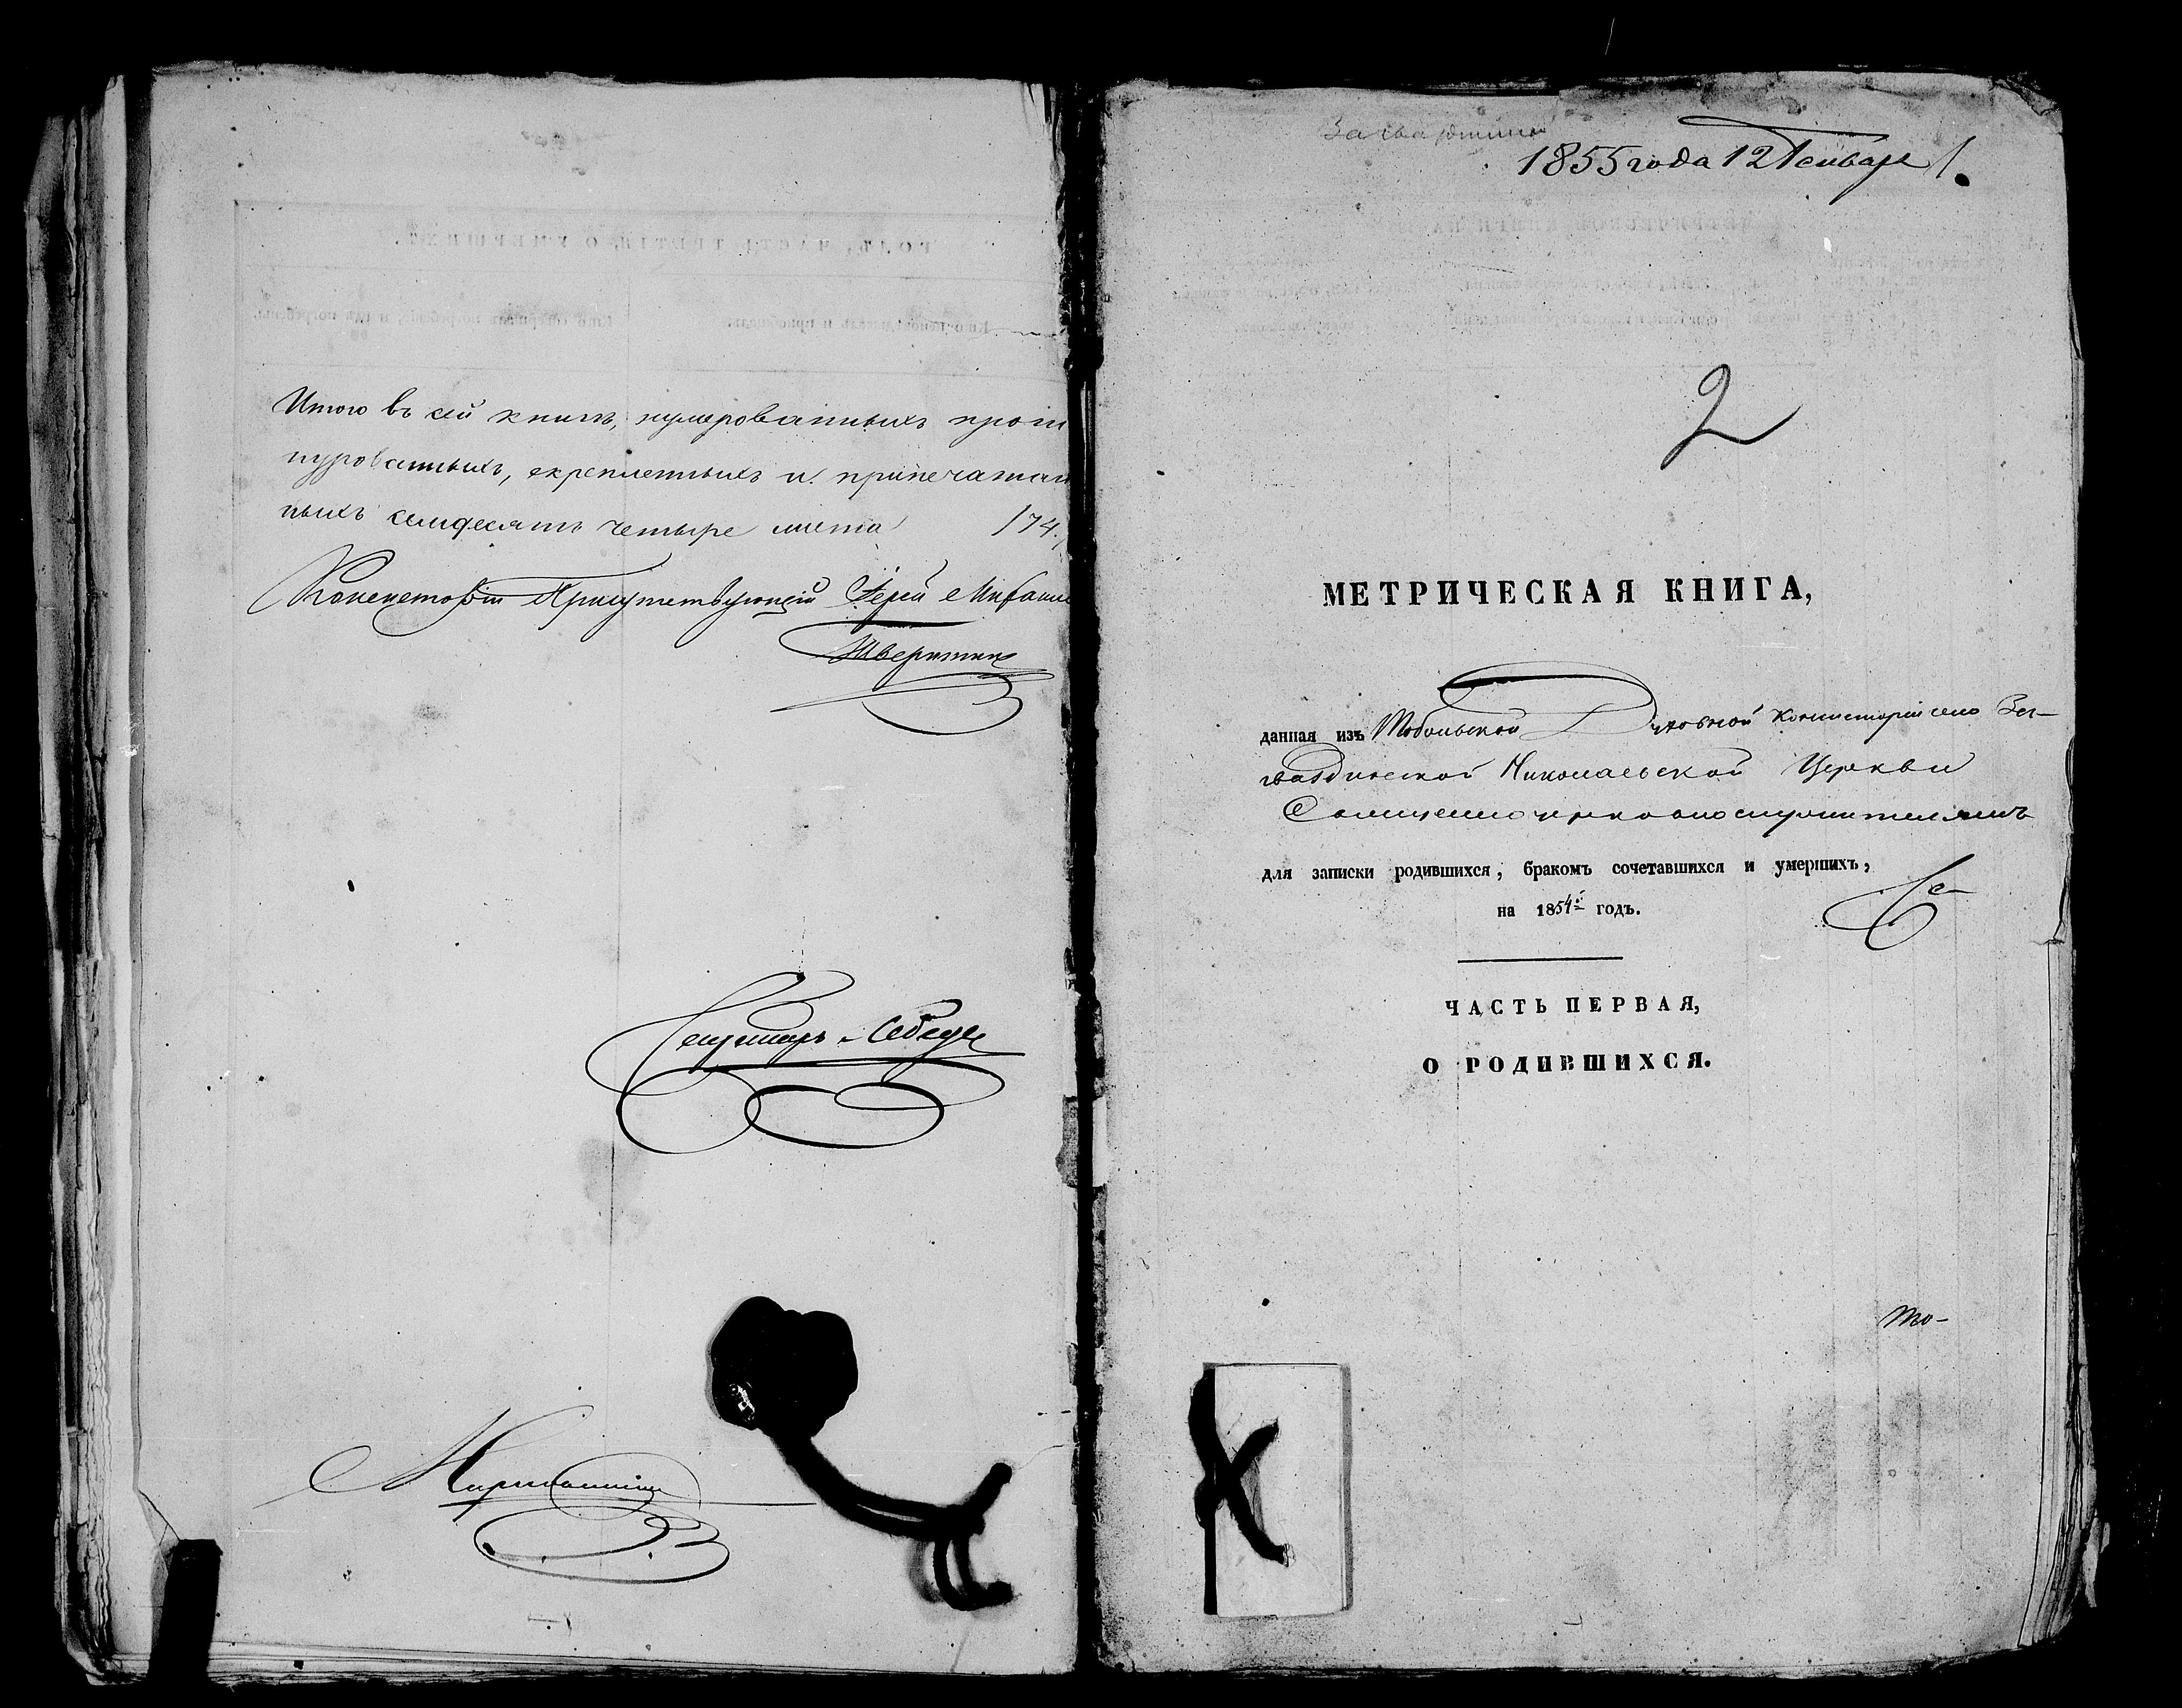 Итого въ сей книгѣ, нумерованныхъ прош
нурованныхъ, скрепленныхъ и припечатан
ныхъ семдесятъ четыре листа /74./
Консисторіи Присутствующій Іерей
Тверитинъ
Секретарь Лебеде
1855 года 12 Генваря 1.
2
МЕТРИЧЕСКАЯ КНИГА,
данная изъ Тобольской Духовной Консисторіи села За-
гваздинской Николаевской Церкви
Священноцерковнослужителямъ
для записки родившихся, бракомъ сочетавшихся и умершихъ,
на 1854й годъ.
Се-
ЧАСТЬ ПЕРВАЯ,
О РОДИВШИХСЯ.
То-